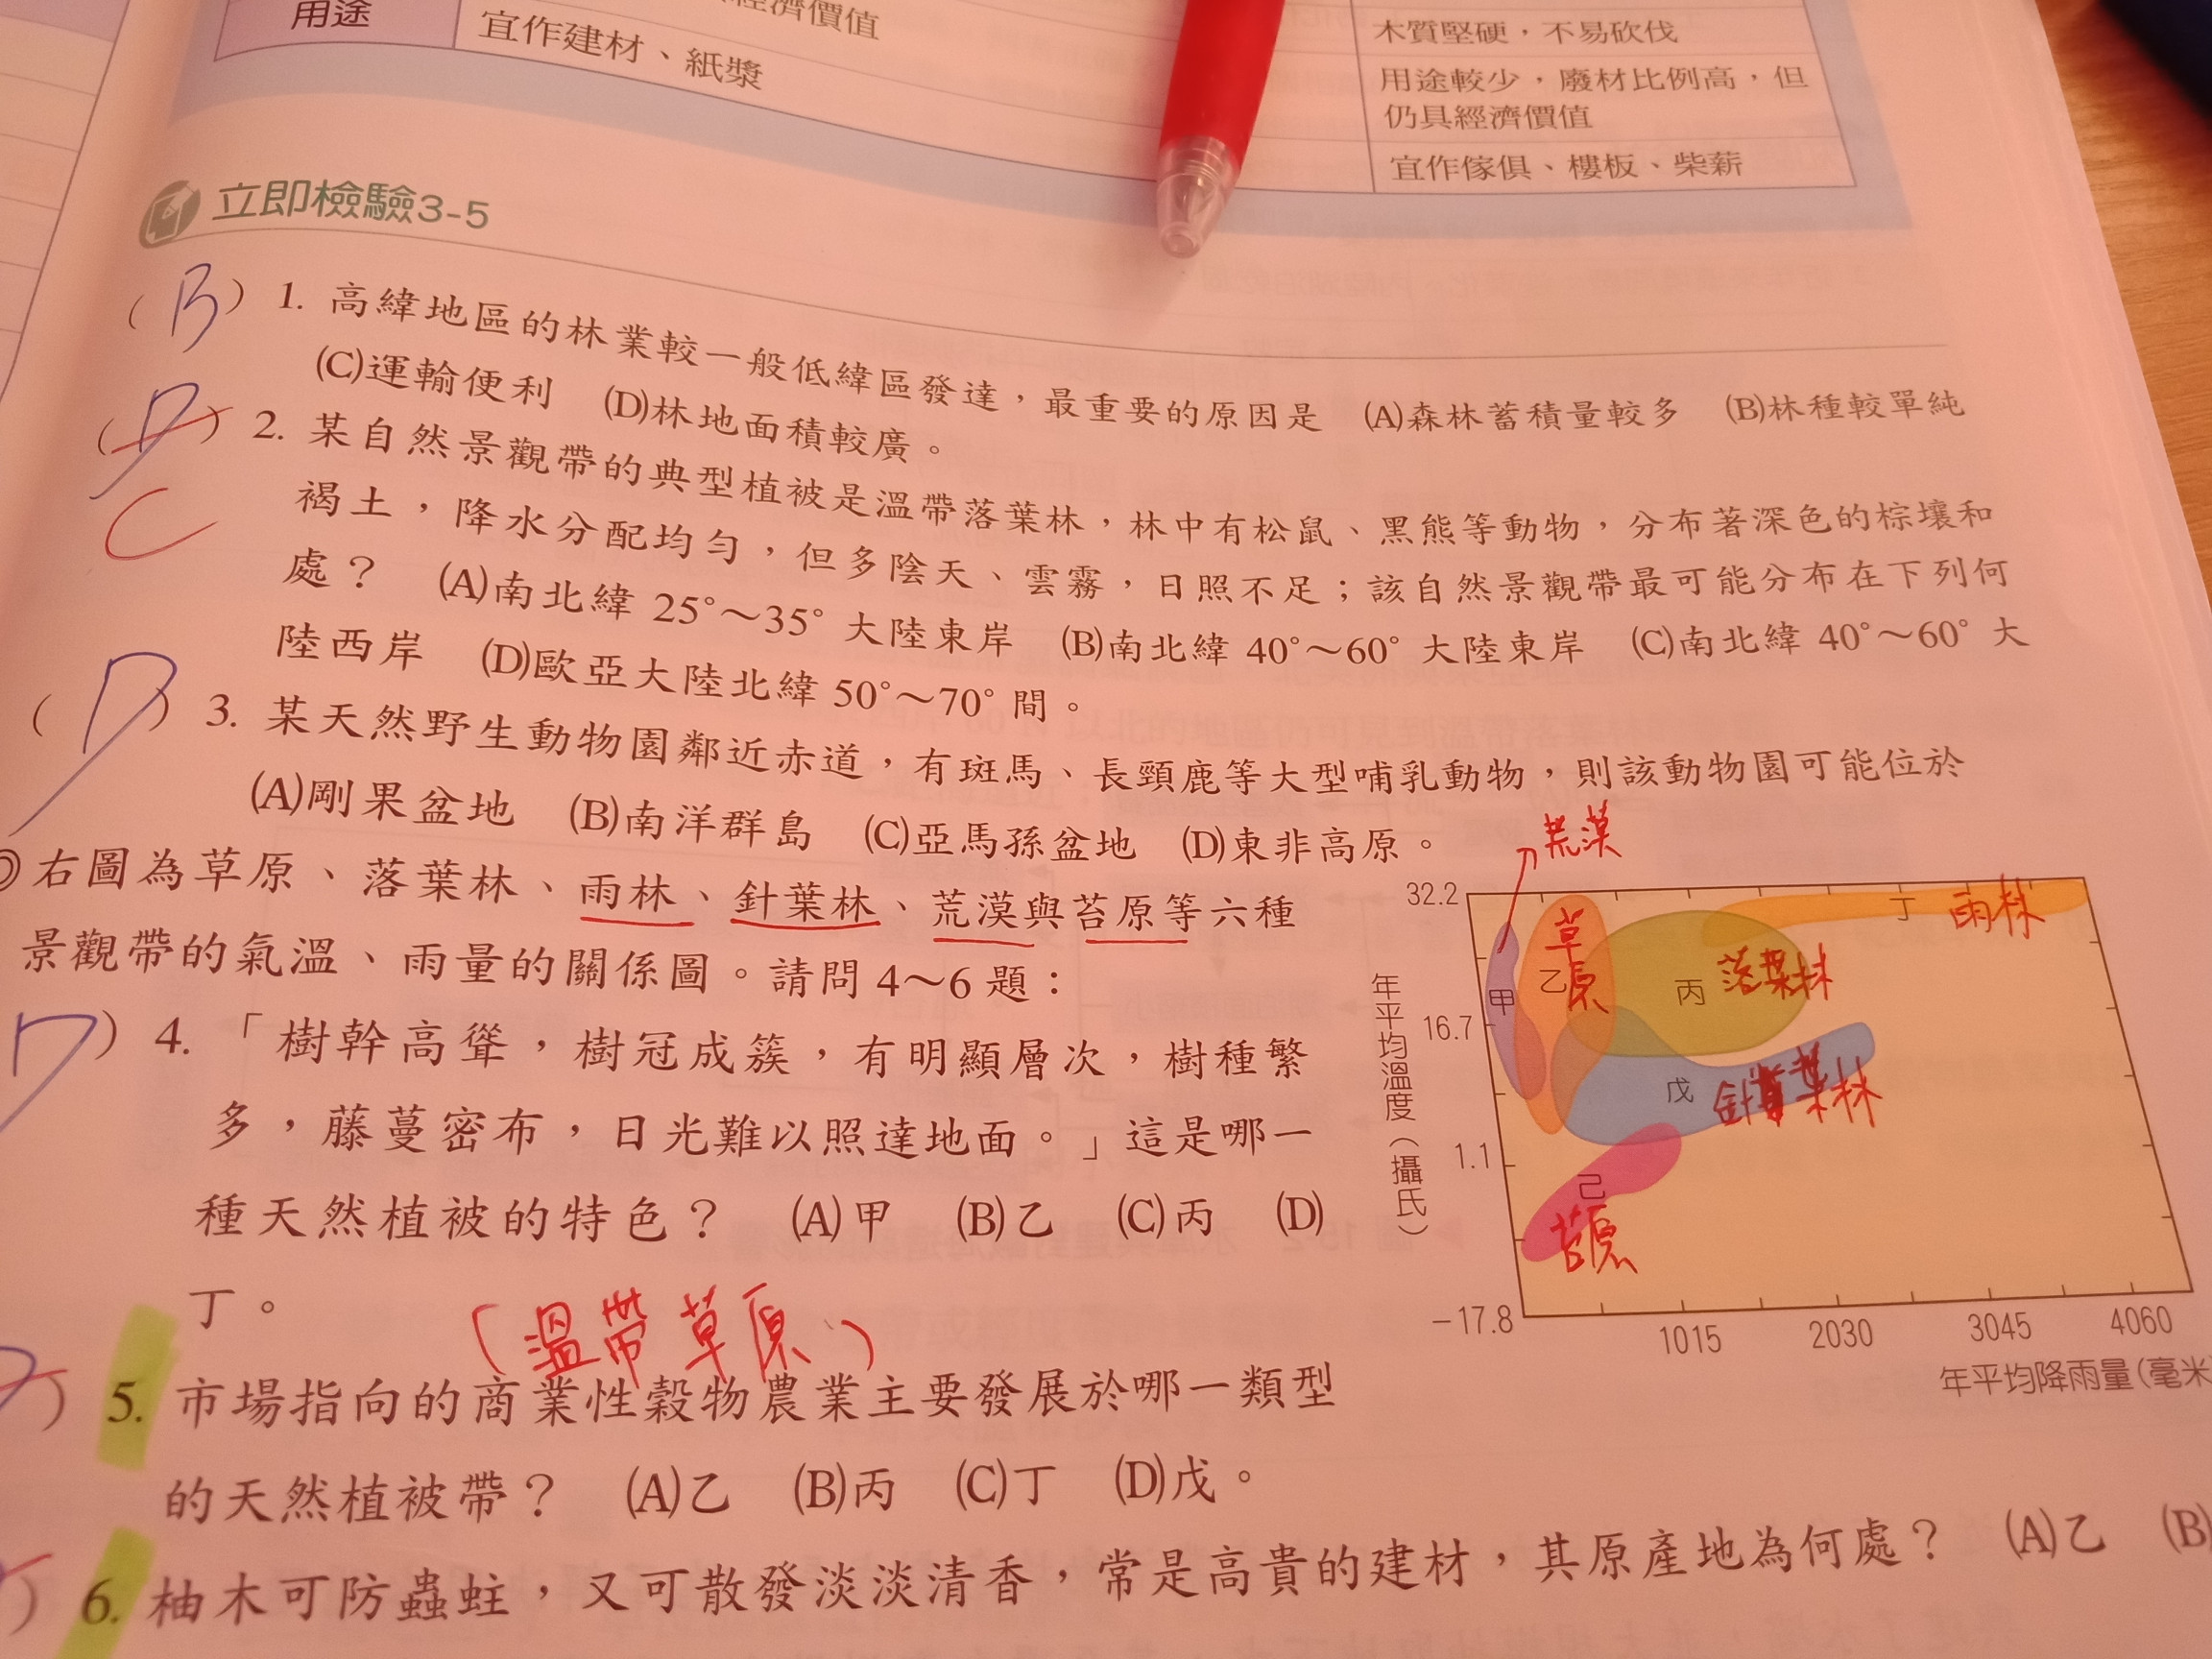 用途
宜作建材、紙漿
經濟價值
木質堅硬，不易砍伐
用途較少，廢材比例高，但
仍具經濟價值
宜作傢俱、樓板、柴薪
立即檢驗3-5
(B) 1. 高緯地區的林業較一般低緯區發達，最重要的原因是 (A)森林蓄積量較多 (B)林種較單純
(C)運輸便利 (D)林地面積較廣。
(D) 2. 某自然景觀帶的典型植被是溫帶落葉林，林中有松鼠、黑熊等動物，分布著深色的棕壤和
C
褐土，降水分配均勻，但多陰天、雲霧，日照不足；該自然景觀帶最可能分布在下列何
處？ (A)南北緯 25°～35° 大陸東岸 (B)南北緯 40°～60° 大陸東岸 (C)南北緯 40°～60° 大
陸西岸 (D)歐亞大陸北緯 50°～70° 間。
(D) 3. 某天然野生動物園鄰近赤道，有斑馬、長頸鹿等大型哺乳動物，則該動物園可能位於
(A)剛果盆地 (B)南洋群島 (C)亞馬孫盆地 (D)東非高原。
◎右圖為草原、落葉林、雨林、針葉林、荒漠與苔原等六種
景觀帶的氣溫、雨量的關係圖。請問 4～6 題：
D) 4. 「樹幹高聳，樹冠成簇，有明顯層次，樹種繁
多，藤蔓密布，日光難以照達地面。」這是哪一
種天然植被的特色？ (A)甲 (B)乙 (C)丙 (D)
丁。
(溫帶草原)
) 5. 市場指向的商業性穀物農業主要發展於哪一類型
的天然植被帶？ (A)乙 (B)丙 (C)丁 (D)戊。
) 6. 柚木可防蟲蛀，又可散發淡淡清香，常是高貴的建材，其原產地為何處？ (A)乙 (B)
荒漠
32.2
16.7
1.1
−17.8
年平均溫度（攝氏）
甲
乙
草原
丙
落葉林
丁
雨林
戊
針葉林
己
苔原
1015
2030
3045
4060
年平均降雨量(毫米